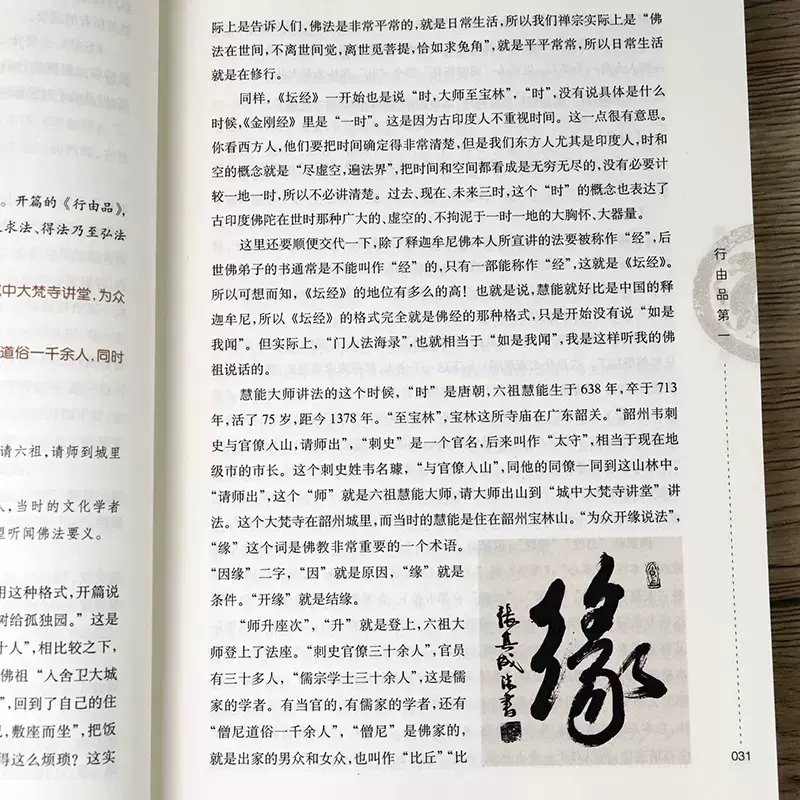 。开篇的《行由品》,
求法、得法乃至弘法
中大梵寺讲堂,为众
道俗一千余人,同时
请六祖,请师到城里
,当时的文化学者
望听闻佛法要义。
用这种格式,开篇说
树给孤独园。”这是
十人”,相比较之下,
佛祖“人舍卫大城
”,回到了自己的住
,敷座而坐”,把饭
得这么烦琐?这实
际上是告诉人们,佛法是非常平常的,就是日常生活,所以我们禅宗实际上是“佛
法在世间,不离世间觉,离世觅菩提,恰如求兔角”,就是平平常常,所以日常生活
就是在修行。
同样,《坛经》一开始也是说“时,大师至宝林”,“时”,没有说具体是什么
时候,《金刚经》里是“一时”。这是因为古印度人不重视时间。这一点很有意思。
你看西方人,他们要把时间确定得非常清楚,但是我们东方人尤其是印度人,时和
空的概念就是“尽虚空,遍法界”,把时间和空间都看成是无穷无尽的,没有必要计
较一地一时,所以不必讲清楚。过去、现在、未来三时,这个“时”的概念也表达了
古印度佛陀在世时那种广大的、虚空的、不拘泥于一时一地的大胸怀、大器量。
这里还要顺便交代一下,除了释迦牟尼佛本人所宣讲的法要被称作“经”,后
世佛弟子的书通常是不能叫作“经”的,只有一部能称作“经”,这就是《坛经》。
所以可想而知,《坛经》的地位有多么的高!也就是说,慧能就好比是中国的释
迦牟尼,所以《坛经》的格式完全就是佛经的那种格式,只是开始没有说“如是
我闻”。但实际上,“门人法海录”,也就相当于“如是我闻”,我是这样听我的佛
祖说话的。
慧能大师讲法的这个时候,“时”是唐朝,六祖慧能生于 638 年,卒于 713
年,活了 75 岁,距今 1378 年。“至宝林”,宝林这所寺庙在广东韶关。“韶州韦刺
史与官僚入山,请师出”,“刺史”是一个官名,后来叫作“太守”,相当于现在地
级市的市长。这个刺史姓韦名璩,“与官僚入山”,同他的同僚一同到这山林中。
“请师出”,这个“师”就是六祖慧能大师,请大师出山到“城中大梵寺讲堂”讲
法。这个大梵寺在韶州城里,而当时的慧能是住在韶州宝林山。“为众开缘说法”,
“缘”这个词是佛教非常重要的一个术语。
“因缘”二字,“因”就是原因,“缘”就是
条件。“开缘”就是结缘。
“师升座次”,“升”就是登上,六祖大
师登上了法座。“刺史官僚三十余人”,官员
有三十多人,“儒宗学士三十余人”,这是儒
家的学者。有当官的,有儒家的学者,还有
“僧尼道俗一千余人”,“僧尼”是佛家的,
就是出家的男众和女众,也叫作“比丘”“比
缘
张其成
书
行由品第一
031